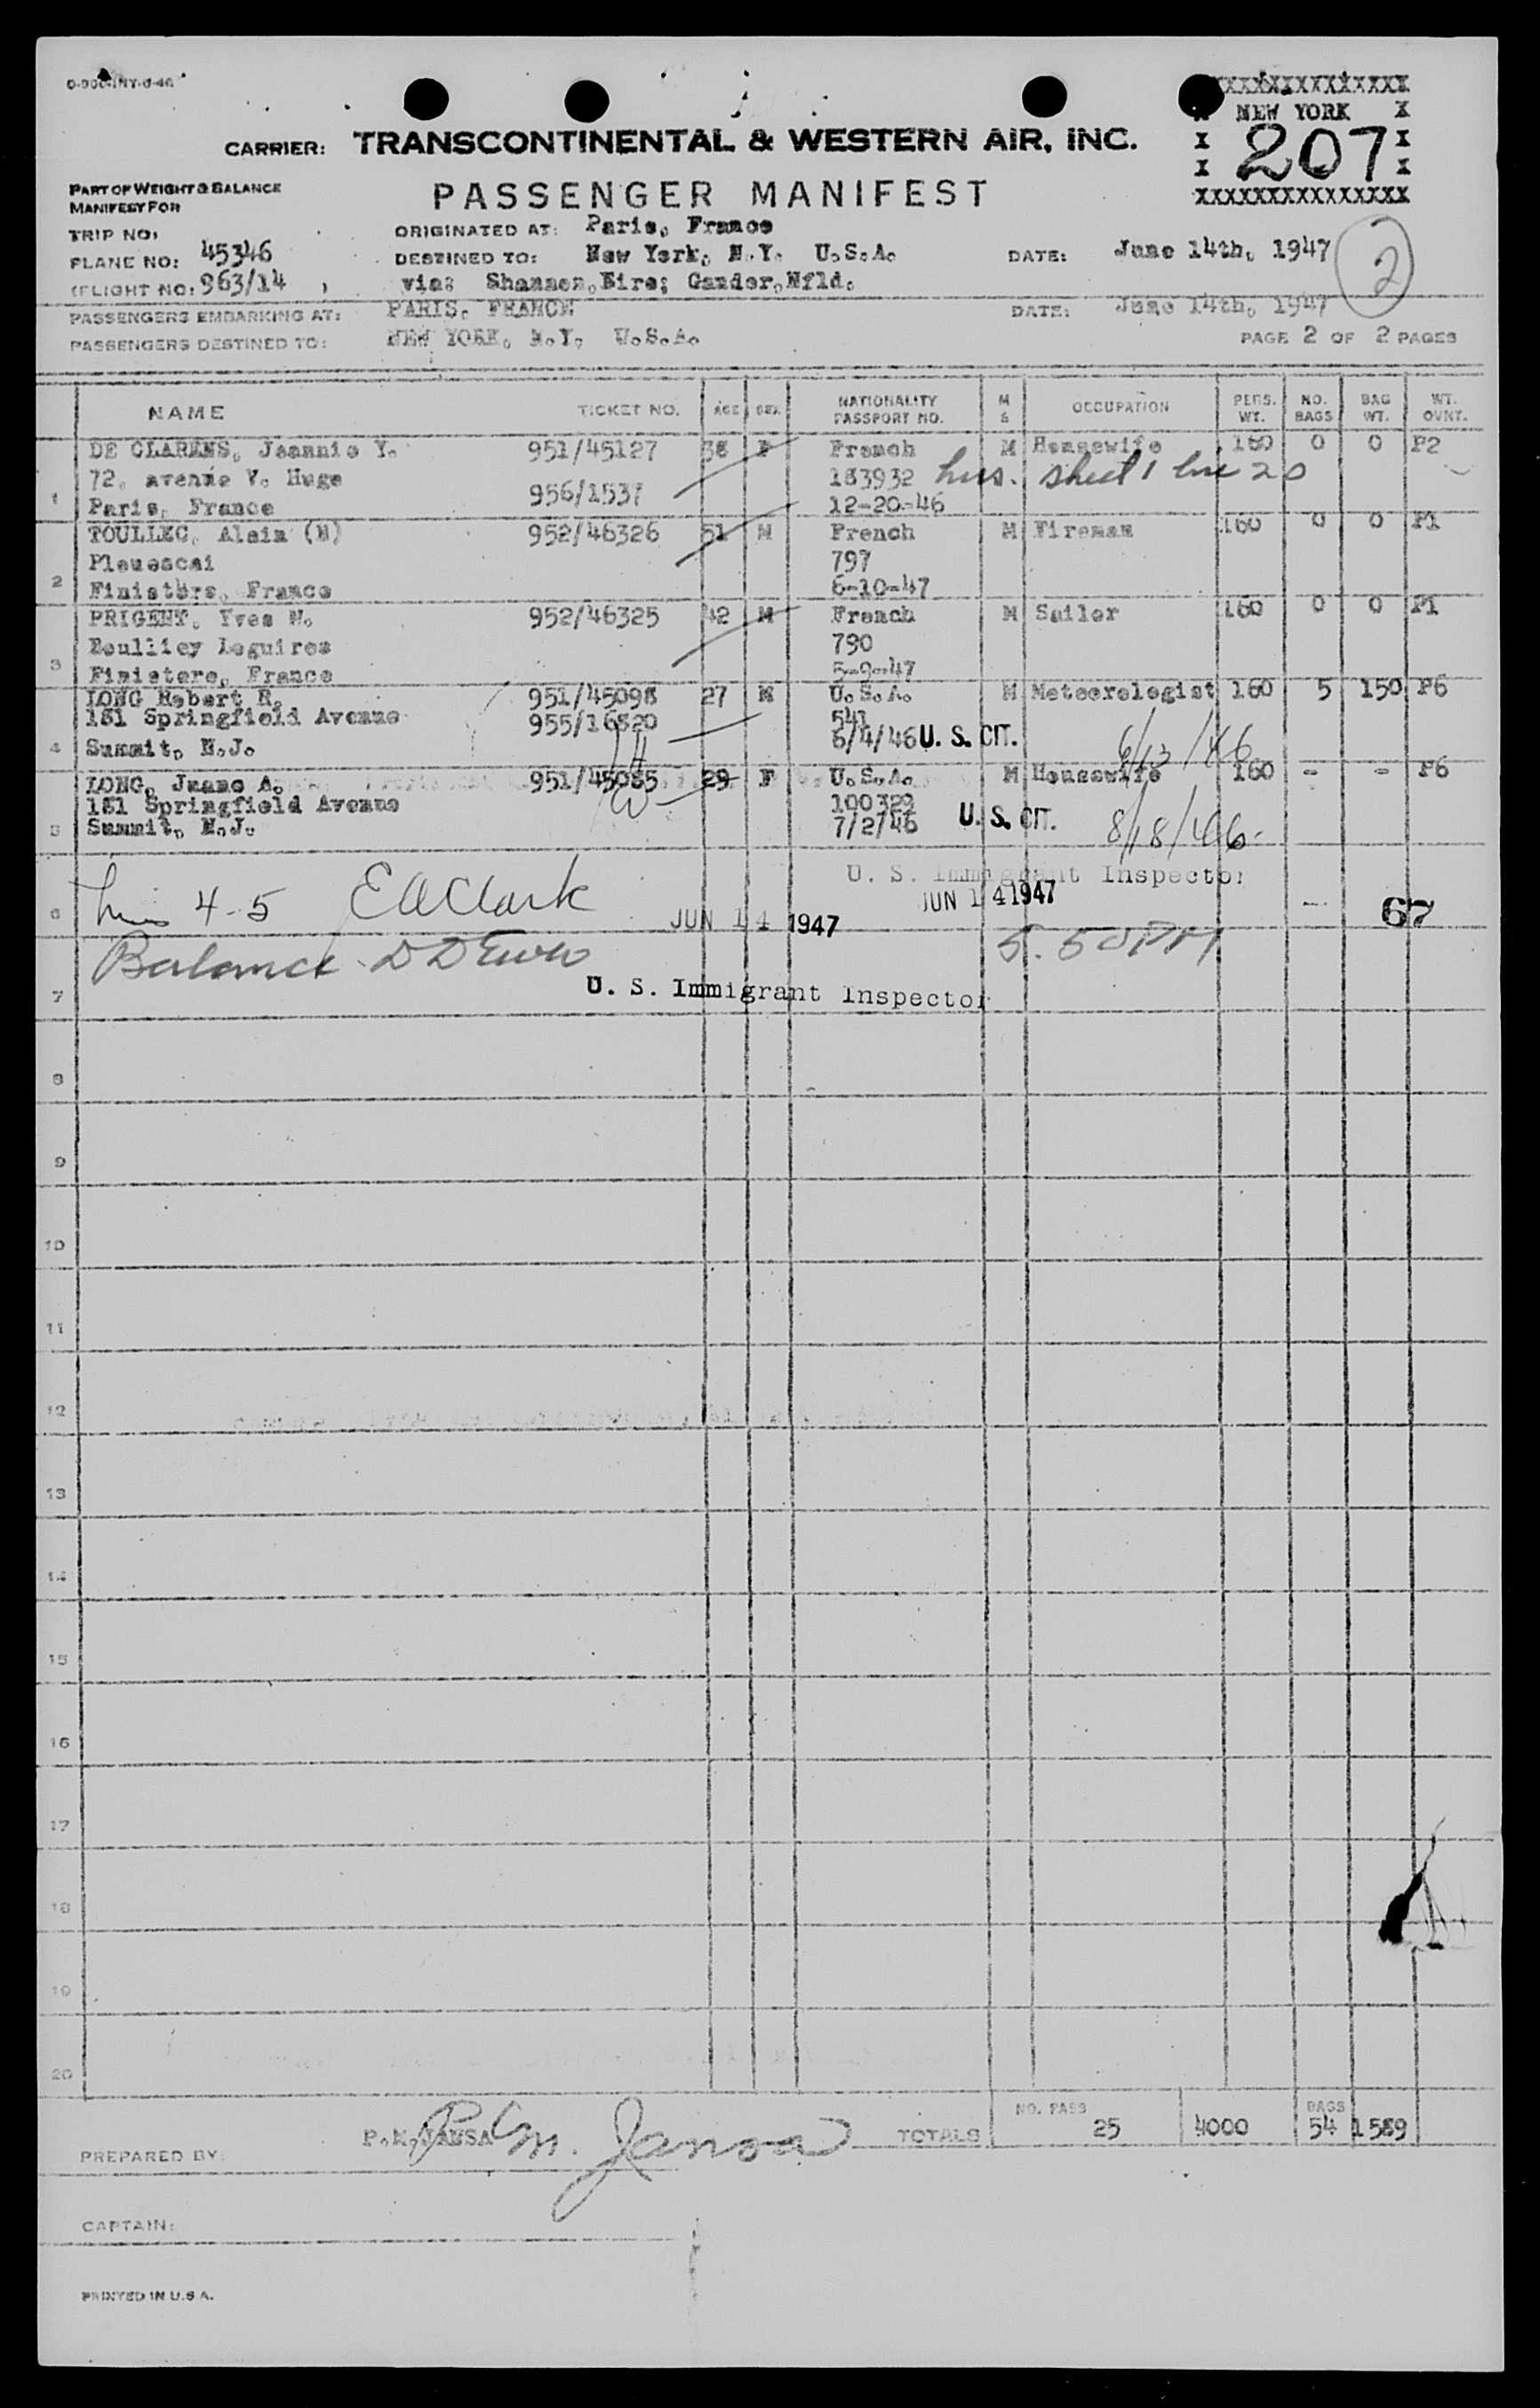 NEW YORK
207
CARRIER: TRANSCONTINENTAL & WESTERN AIR, INC.
PART OF WEIGHT & BALANCE
MANIFEST FOR
PASSENGER MANIFEST
TRIP NO:
ORIGINATED AT: Paris, France
PLANE NO: 45346
DESTINED TO: New York, N.Y. U.S.A. DATE: June 14th, 1947
2
(FLIGHT NO: 963/14 ) via: Shannon, Eire; Gander, Nfld.
PASSENGERS EMBARKING AT: PARIS, FRANCE DATE: June 14th, 1947
PASSENGERS DESTINED TO: NEW YORK, N.Y. U.S.A. PAGE 2 OF 2 PAGES
NAME TICKET NO. AGE SEX NATIONALITY PASSPORT NO. M S OCCUPATION PERS. WT. NO. BAGS BAG WT. WT. OVNT.
1 DE CLARENS, Jeannie Y. 951/45127 38 F French M Housewife 160 0 0 P2
72, avenue V. Hugo 956/1537 183932 hus. sheet 1 line 20
Paris, France 12-20-46
2 TOULLEC, Alain (N) 952/46326 51 M French M Fireman 160 0 0 P1
Plouescat 797
Finistere, France 6-10-47
3 PRIGENT, Yves M. 952/46325 42 M French M Sailor 160 0 0 P1
790
Finistere, France 5-9-47
4 LONG Robert R. 951/45098 27 M U.S.A. M Meteorologist 160 5 150 P6
181 Springfield Avenue 955/16820 541
Summit, N.J. 6/4/46 U. S. CIT. 6/13/46
5 LONG, Jeane A. 951/45085 29 F U.S.A. M Housewife 160 - - P6
181 Springfield Avenue 100329
Summit, N.J. 7/2/46 U. S. CIT. 8/18/46
U. S. Immigrant Inspector
6 4-5 E A Clark JUN 14 1947 JUN 14 1947 - 67
Balance 5.50 PM
7 U. S. Immigrant Inspector
8
9
10
11
12
13
14
15
16
17
18
19
20
NO. PASS BAGS
PREPARED BY: P.M. JANSA P M. Jansa TOTALS 25 4000 54 1589
CAPTAIN:
PRINTED IN U.S.A.